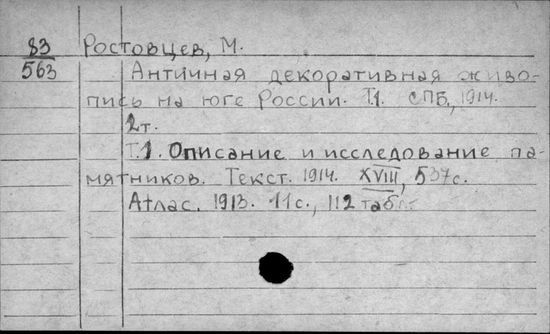 83 Ростовцев, М.
563 Античная декоративная живо-
пись на юге России. Т.1. СПБ., 1914.
2т.
Т.1. Описание и исследование па-
мятников. Текст. 1914. XVIII, 537с.
Атлас. 1913. 11с., 112 табл.